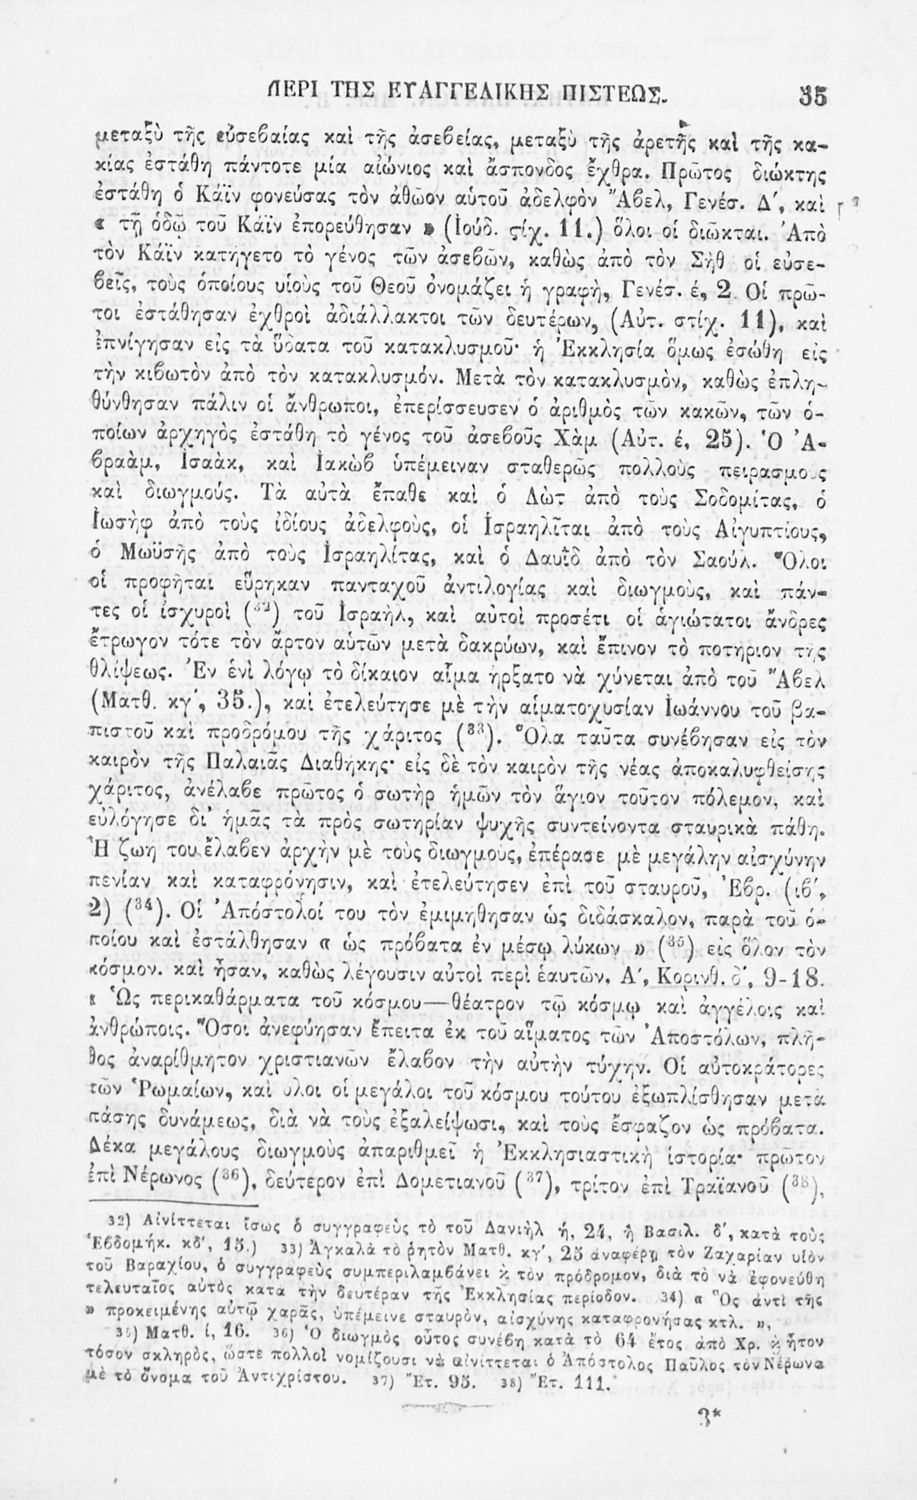 ΠΕΡΙ ΤΗΣ ΕΥΑΓΓΕΛΙΚΗΣ ΠΙΣΤΕΩΣ. 35
μεταξὺ τῆς εὐσεβαίας καὶ τῆς ἀσεβείας, μεταξὺ τῆς ἀρετῆς καὶ τῆς κα-
κίας ἐστάθη πάντοτε μία αἰώνιος καὶ ἄσπονδος ἔχθρα. Πρῶτος διώκτης
ἐστάθη ὁ Κάϊν φονεύσας τὸν ἀθῶον αὑτοῦ ἀδελφὸν Ἄβελ, Γενέσ. Δ΄, καὶ
« τῇ ὁδῷ τοῦ Κάϊν ἐπορεύθησαν » (Ἰούδ. ςίχ. 11.) ὅλοι οἱ διῶκται. Ἀπὸ
τὸν Κάϊν κατήγετο τὸ γένος τῶν ἀσεβῶν, καθὼς ἀπὸ τὸν Σὴθ οἱ εὐσε-
βεῖς, τοὺς ὁποίους υἱοὺς τοῦ Θεοῦ ὀνομάζει ἡ γραφὴ, Γενέσ. έ, 2. Οἱ πρῶ-
τοι ἐστάθησαν ἐχθροὶ ἀδιάλλακτοι τῶν δευτέρων, (Αὐτ. στίχ. 11), καὶ
ἐπνίγησαν εἰς τὰ ὕδατα τοῦ κατακλυσμοῦ· ἡ Ἐκκλησία ὅμως ἐσώθη εἰς
τὴν κιβωτὸν ἀπὸ τὸν κατακλυσμόν. Μετὰ τὸν κατακλυσμὸν, καθὼς ἐπλη-
θύνθησαν πάλιν οἱ ἄνθρωποι, ἐπερίσσευσεν ὁ ἀριθμὸς τῶν κακῶν, τῶν ὁ-
ποίων ἀρχηγὸς ἐστάθη τὸ γένος τοῦ ἀσεβοῦς Χὰμ (Αὐτ. έ, 25). Ὁ Ἀ-
βραὰμ, Ἰσαὰκ, καὶ Ἰακὼβ ὑπέμειναν σταθερῶς πολλοὺς πειρασμοὺς
καὶ διωγμούς. Τὰ αὐτὰ ἔπαθε καὶ ὁ Λὼτ ἀπὸ τοὺς Σοδομίτας, ὁ
Ἰωσὴφ ἀπὸ τοὺς ἰδίους ἀδελφοὺς, οἱ Ἰσραηλῖται ἀπὸ τοὺς Αἰγυπτίους,
ὁ Μωϋσῆς ἀπὸ τοὺς Ἰσραηλίτας, καὶ ὁ Δαυῒδ ἀπὸ τὸν Σαούλ. Ὅλοι
οἱ προφῆται εὕρηκαν πανταχοῦ ἀντιλογίας καὶ διωγμοὺς, καὶ πάν-
τες οἱ ἰσχυροὶ (32) τοῦ Ἰσραὴλ, καὶ αὐτοὶ προσέτι οἱ ἁγιώτατοι ἄνδρες
ἔτρωγον τότε τὸν ἄρτον αὑτῶν μετὰ δακρύων, καὶ ἔπινον τὸ ποτήριον τῆς
θλίψεως. Ἐν ἑνὶ λόγῳ τὸ δίκαιον αἷμα ἤρξατο νὰ χύνεται ἀπὸ τοῦ Ἄβελ
(Ματθ. κγ΄, 35.), καὶ ἐτελεύτησε μὲ τὴν αἱματοχυσίαν Ἰωάννου τοῦ βα-
πιστοῦ καὶ προδρόμου τῆς χάριτος (33). Ὅλα ταῦτα συνέβησαν εἰς τὸν
καιρὸν τῆς Παλαιᾶς Διαθήκης· εἰς δὲ τὸν καιρὸν τῆς νέας ἀποκαλυφθείσης
χάριτος, ἀνέλαβε πρῶτος ὁ σωτὴρ ἡμῶν τὸν ἅγιον τοῦτον πόλεμον, καὶ
εὐλόγησε δι᾽ ἡμᾶς τὰ πρὸς σωτηρίαν ψυχῆς συντείνοντα σταυρικὰ πάθη.
Ἡ ζωή του ἔλαβεν ἀρχὴν μὲ τοὺς διωγμοὺς, ἐπέρασε μὲ μεγάλην αἰσχύνην
πενίαν καὶ καταφρόνησιν, καὶ ἐτελεύτησεν ἐπὶ τοῦ σταυροῦ, Ἑβρ. (ιβ΄,
2) (34). Οἱ Ἀπόστολοί του τὸν ἐμιμήθησαν ὡς διδάσκαλον, παρὰ τοῦ ὁ-
ποίου καὶ ἐστάλθησαν « ὡς πρόβατα ἐν μέσῳ λύκων » (35) εἰς ὅλον τὸν
κόσμον. καὶ ἦσαν, καθὼς λέγουσιν αὐτοὶ περὶ ἑαυτῶν, Α΄, Κορινθ. δ΄, 9-18.
« Ὡς περικαθάρματα τοῦ κόσμου—θέατρον τῷ κόσμῳ καὶ ἀγγέλοις καὶ
ἀνθρώποις. Ὅσοι ἀνεφύησαν ἔπειτα ἐκ τοῦ αἵματος τῶν Ἀποστόλων, πλῆ-
θος ἀναρίθμητον χριστιανῶν ἔλαβον τὴν αὐτὴν τύχην. Οἱ αὐτοκράτορες
τῶν Ῥωμαίων, καὶ ὅλοι οἱ μεγάλοι τοῦ κόσμου τούτου ἐξωπλίσθησαν μετὰ
πάσης δυνάμεως, διὰ νὰ τοὺς ἐξαλείψωσι, καὶ τοὺς ἔσφαζον ὡς πρόβατα.
Δέκα μεγάλους διωγμοὺς ἀπαριθμεῖ ἡ Ἐκκλησιαστικὴ ἱστορία· πρῶτον
ἐπὶ Νέρωνος (36), δεύτερον ἐπὶ Δομετιανοῦ (37), τρίτον ἐπὶ Τραϊανοῦ (38),
32) Αἰνίττεται ἴσως ὁ συγγραφεὺς τὸ τοῦ Δανιὴλ ή, 24, ἢ Βασιλ. δ΄, κατὰ τοὺς
Ἑβδομήκ. κδ΄, 15.) 33) Ἀγκαλὰ τὸ ῥητὸν Ματθ. κγ΄, 25 ἀναφέρῃ τὸν Ζαχαρίαν υἱὸν
τοῦ Βαραχίου, ὁ συγγραφεὺς συμπεριλαμβάνει ϗ τὸν πρόδρομον, διὰ τὸ νὰ ἐφονεύθη
τελευταῖος αὐτὸς κατὰ τὴν δευτέραν τῆς Ἐκκλησίας περίοδον. 34) « Ὃς ἀντὶ τῆς
» προκειμένης αὐτῷ χαρᾶς, ὑπέμεινε σταυρὸν, αἰσχύνης καταφρονήσας κτλ. »,
35) Ματθ. ί, 16. 36) Ὁ διωγμὸς οὗτος συνέβη κατὰ τὸ 64 ἔτος ἀπὸ Χρ. ϗ ἦτον
τόσον σκληρὸς, ὥστε πολλοὶ νομίζουσι νὰ αἰνίττεται ὁ Ἀπόστολος Παῦλος τὸν Νέρωνα
μὲ τὸ ὄνομα τοῦ Ἀντιχρίστου. 37) Ἔτ. 95. 38) Ἔτ. 111.
3*